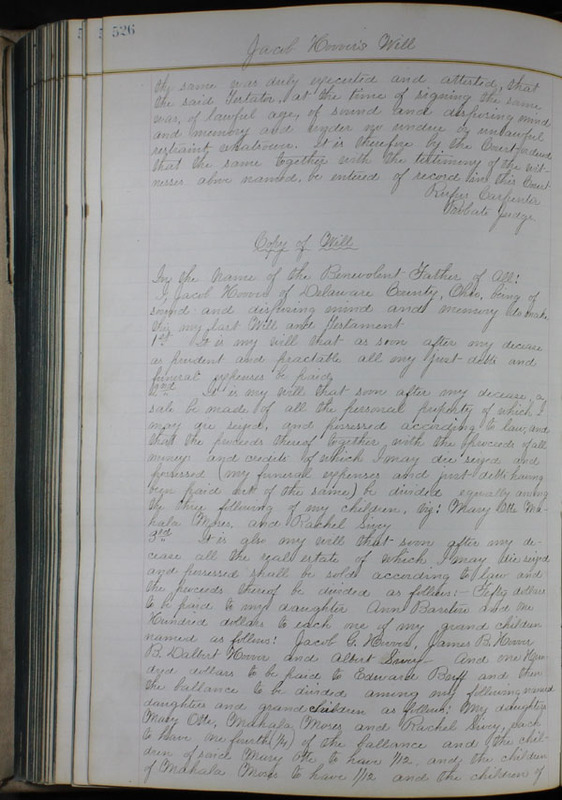 526
Jacob Hoover's Will
the same was duly executed and attested, that
the said Testator, at the time of signing the same
was, of lawful age, of sound and disposing mind
and memory and under no undue or unlawful
restraint whatever. It is therefore by the Court ordered
that the same together with the testimony of the wit-
nesses above named, be entered of record in this Court
Rufus Carpenter
Probate Judge
Copy of Will
In the Name of the Benevolent Father of All:
I, Jacob Hoover of Delaware County, Ohio, being of
sound and disposing mind and memory do make
this my last Will and Testament
1st It is my will that as soon after my decease
as prudent and practable all my just debts and
funeral expenses be paid
2nd It is my will that soon after my decease, a
sale be made of all the personal property of which I
may die seized, and possessed according to law, and
that the proceeds thereof together with the proceeds of all
money and credits of which I may die seized and
possessed (my funeral expenses and just debts having
been paid out of the same) be divided equally among
the three following of my children, viz: Mary Otte Ma-
hala Moses, and Rachel Sivey
3rd It is also my will that soon after my de-
cease all the real estate of which I may die seized
and possessed shall be sold according to law and
the proceeds thereof be divided as follows:- Fifty dollars
to be paid to my daughter Ann Barstow and One
Hundred dollars to each one of my grand children
named as follows: Jacob G. Hoover, James B. Hoover
B. Dalbert Hoover and Albert Sivey And one Hun-
dred dollars to be paid to Edward and then
the ballance to be divided among my following named
daughters and grand children as follows: My daughters
Mary Otte, Mahala Moses and Rachel Sivey, each
to have one fourth (1/4) of the ballance and the chil-
dren of said Mary Otte to have 1/12 and the children
of Mahala Moses to have 1/12 and the children of